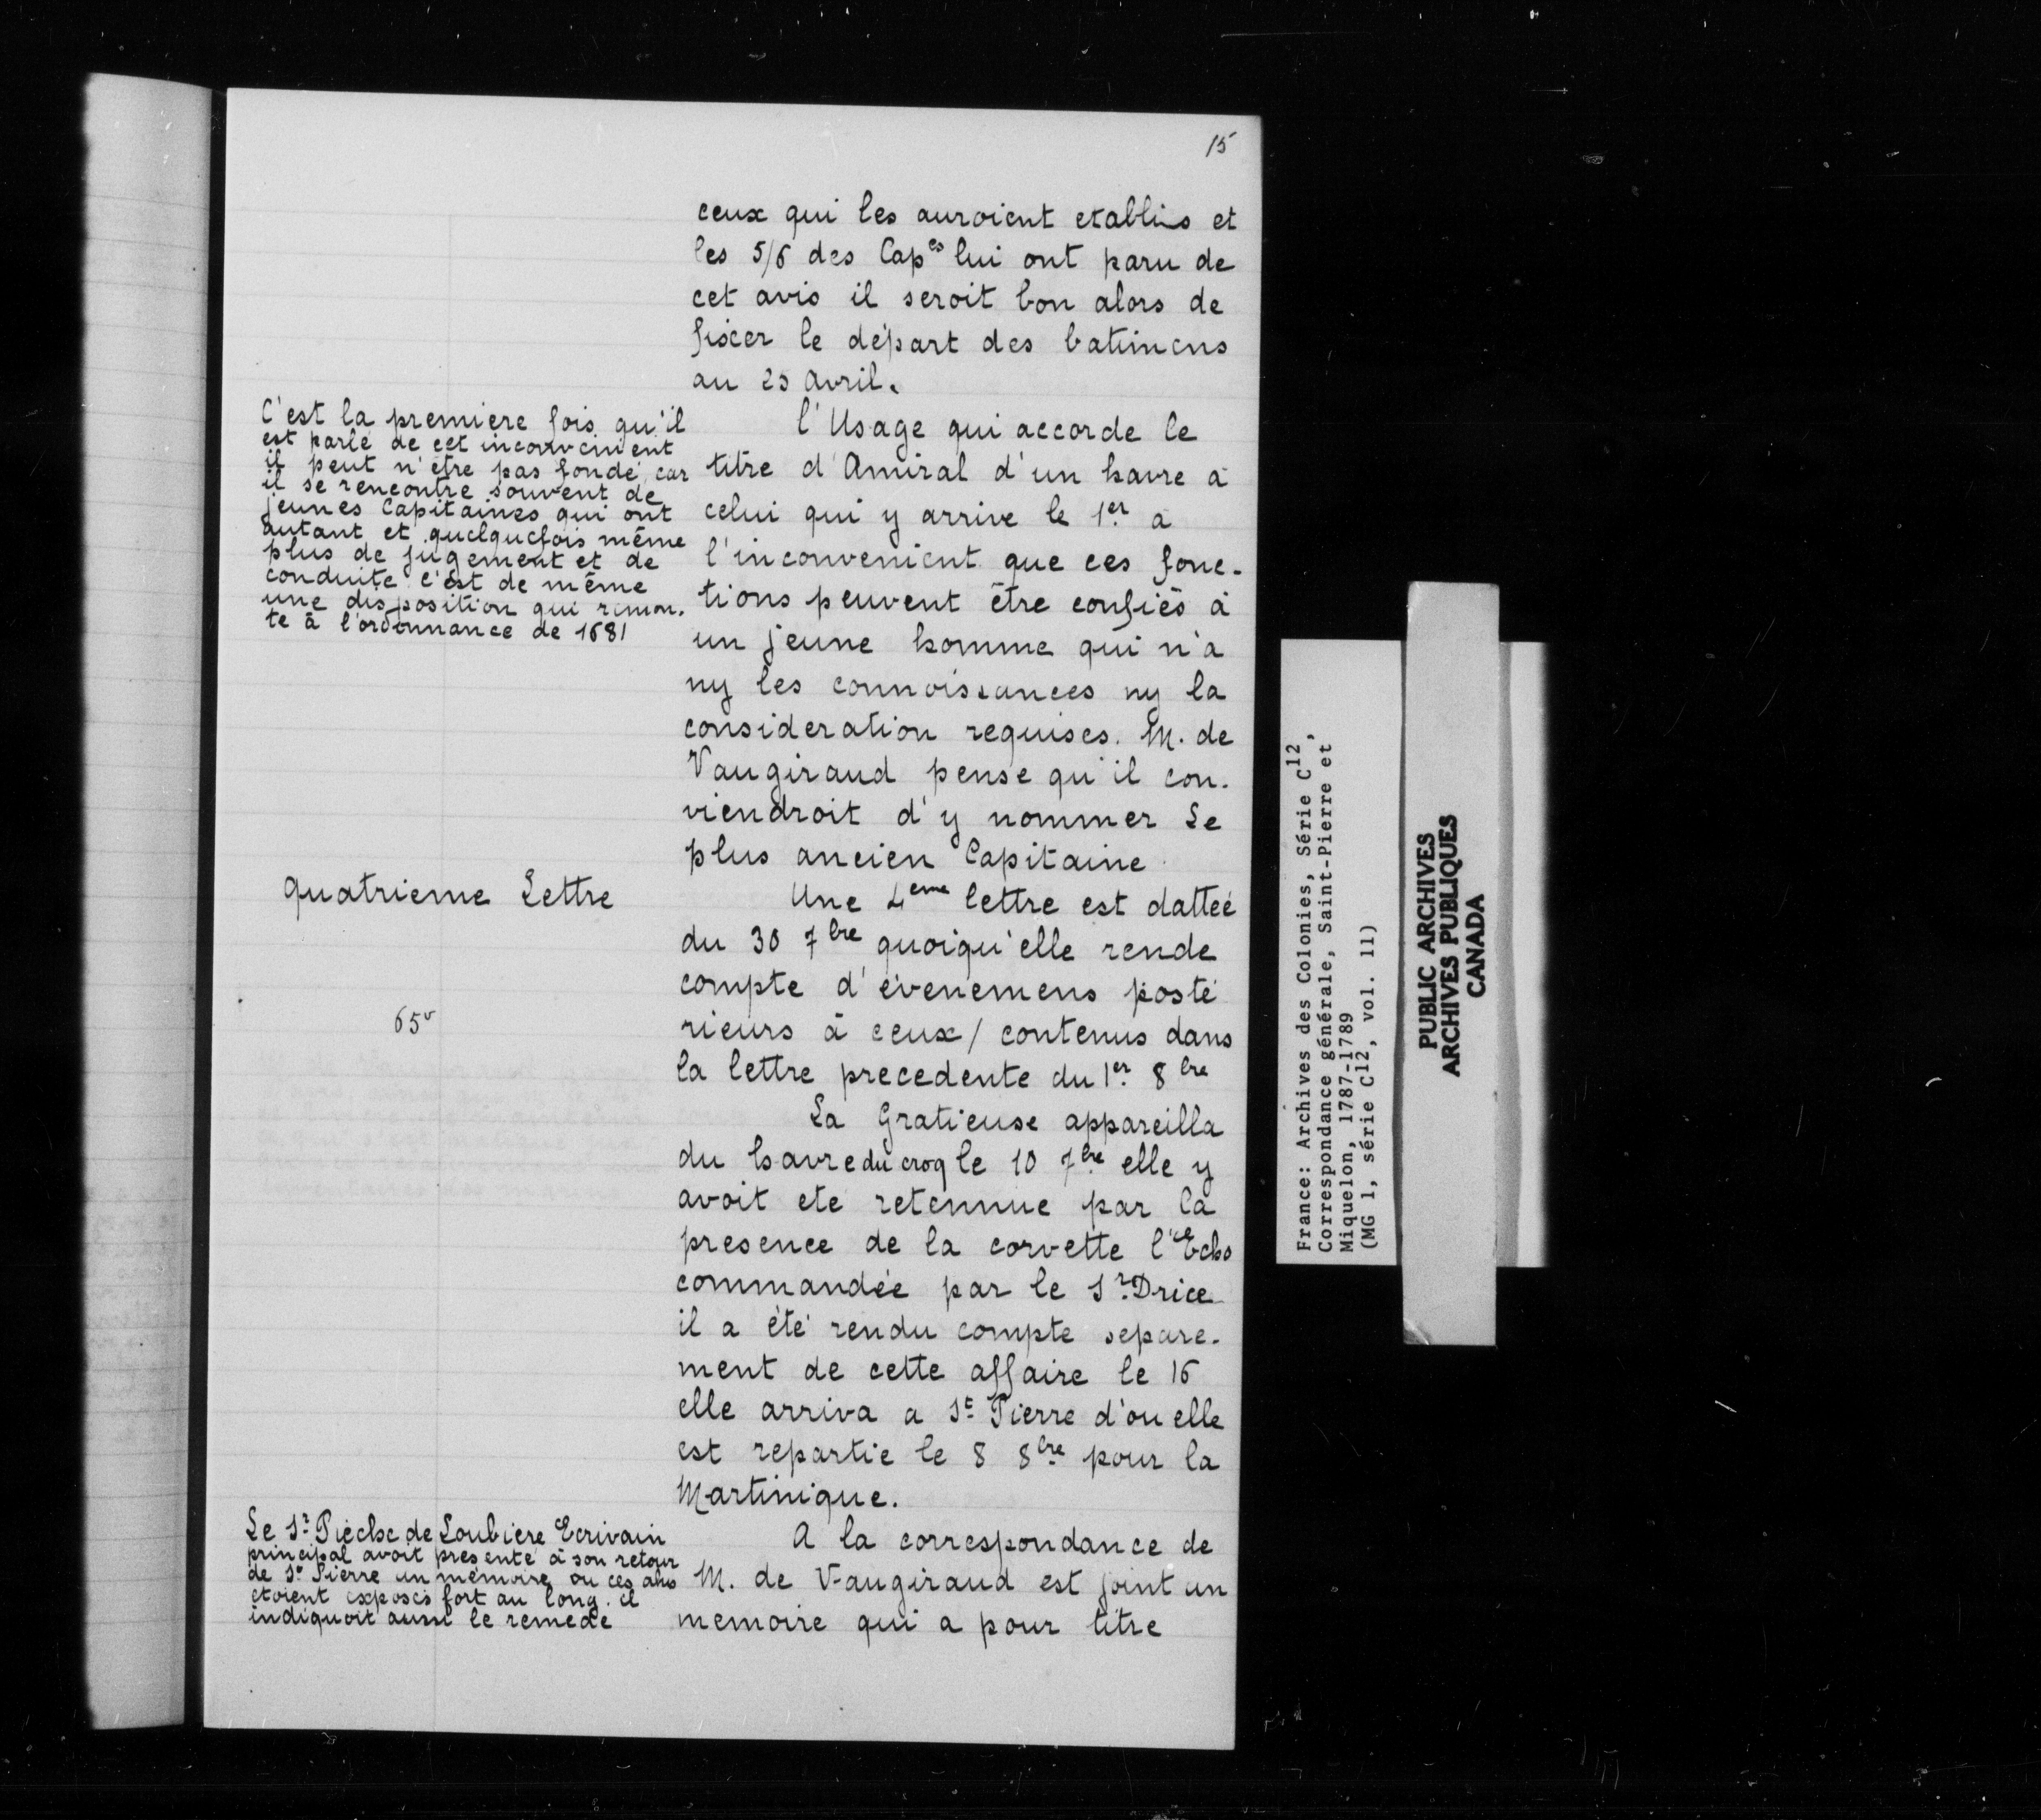 15
ceux qui les auroient etablis et
les 5/6 des Cap.es lui ont paru de
cet avis il seroit bon alors de
fixer le départ des batimens
au 25 Avril.
C'est la premiere fois qu'il
est parlé de cet inconvenient
il peut n'être pas fondé, car
il se rencontre souvent de
jeunes Capitaines qui ont
autant et quelquefois même
plus de jugement et de
conduite c'est de même
une disposition qui remon.
te à l'ordonnance de 1681
l'Usage qui accorde le
titre d'Amiral d'un havre à
celui qui y arrive le 1er a
l'inconvenient que ces fonc-
tions peuvent être confiés à
un jeune homme qui n'a
ny les connoissances ny la
consideration requises. M. de
Vaugiraud pense qu'il con-
viendroit d'y nommer Le
plus ancien Capitaine
quatrieme Lettre
Une 4eme lettre est dattée
du 30 7bre quoiqu'elle rende
compte d'évenemens posté
65v
rieurs à ceux / contenus dans
la lettre precedente du 1er 8bre
La Gratieuse appareilla
du havre du croq le 10 7bre elle y
avoit ete retennue par la
presence de la corvette l'Echo
commandée par le Sr. Drice
il a été rendu compte separe-
ment de cette affaire le 16
elle arriva a St. Pierre d'ou elle
est repartie le 8 8bre pour la
Martinique.
Le Sr. Pièche de Loubiere Ecrivain
principal avoit presenté à son retour
de St. Pierre un mémoire ou ces abus
étoient exposés fort au long. il
indiquoit aussi le remede
A la correspondance de
M. de Vaugiraud est joint un
memoire qui a pour titre
France: Archives des Colonies, Série C12,
Correspondance générale, Saint-Pierre et
Miquelon, 1787-1789
(MG 1, série C12, vol. 11)
PUBLIC ARCHIVES
ARCHIVES PUBLIQUES
CANADA